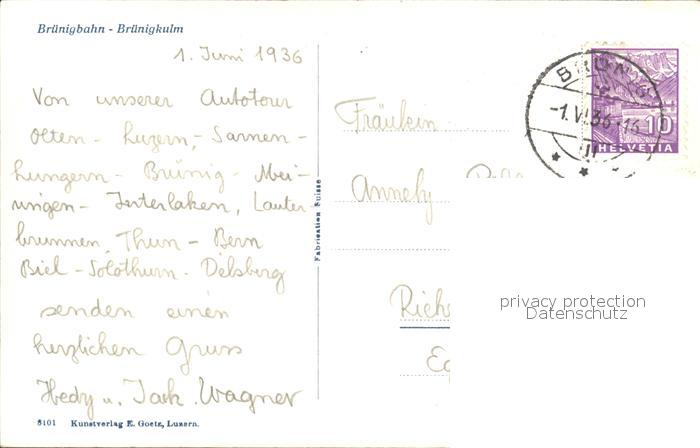 Brünigbahn - Brünigkulm
1. Juni 1936
Von unserer Autotour
Olten - Luzern, - Sarnen -
Lungern - Brünig - Mei-
ringen - Interlaken, Lauter
brunnen, Thun - Bern
Biel - Solothurn - Delsberg
senden einen
herzlichen Gruss
Hedy u. Jack. Wagner
8101 Kunstverlag E. Goetz, Luzern.
Fabrication Suisse
BRÜNIG
-1.VI.36-
10
HELVETIA
Fräulein
Annely
privacy protection
Datenschutz